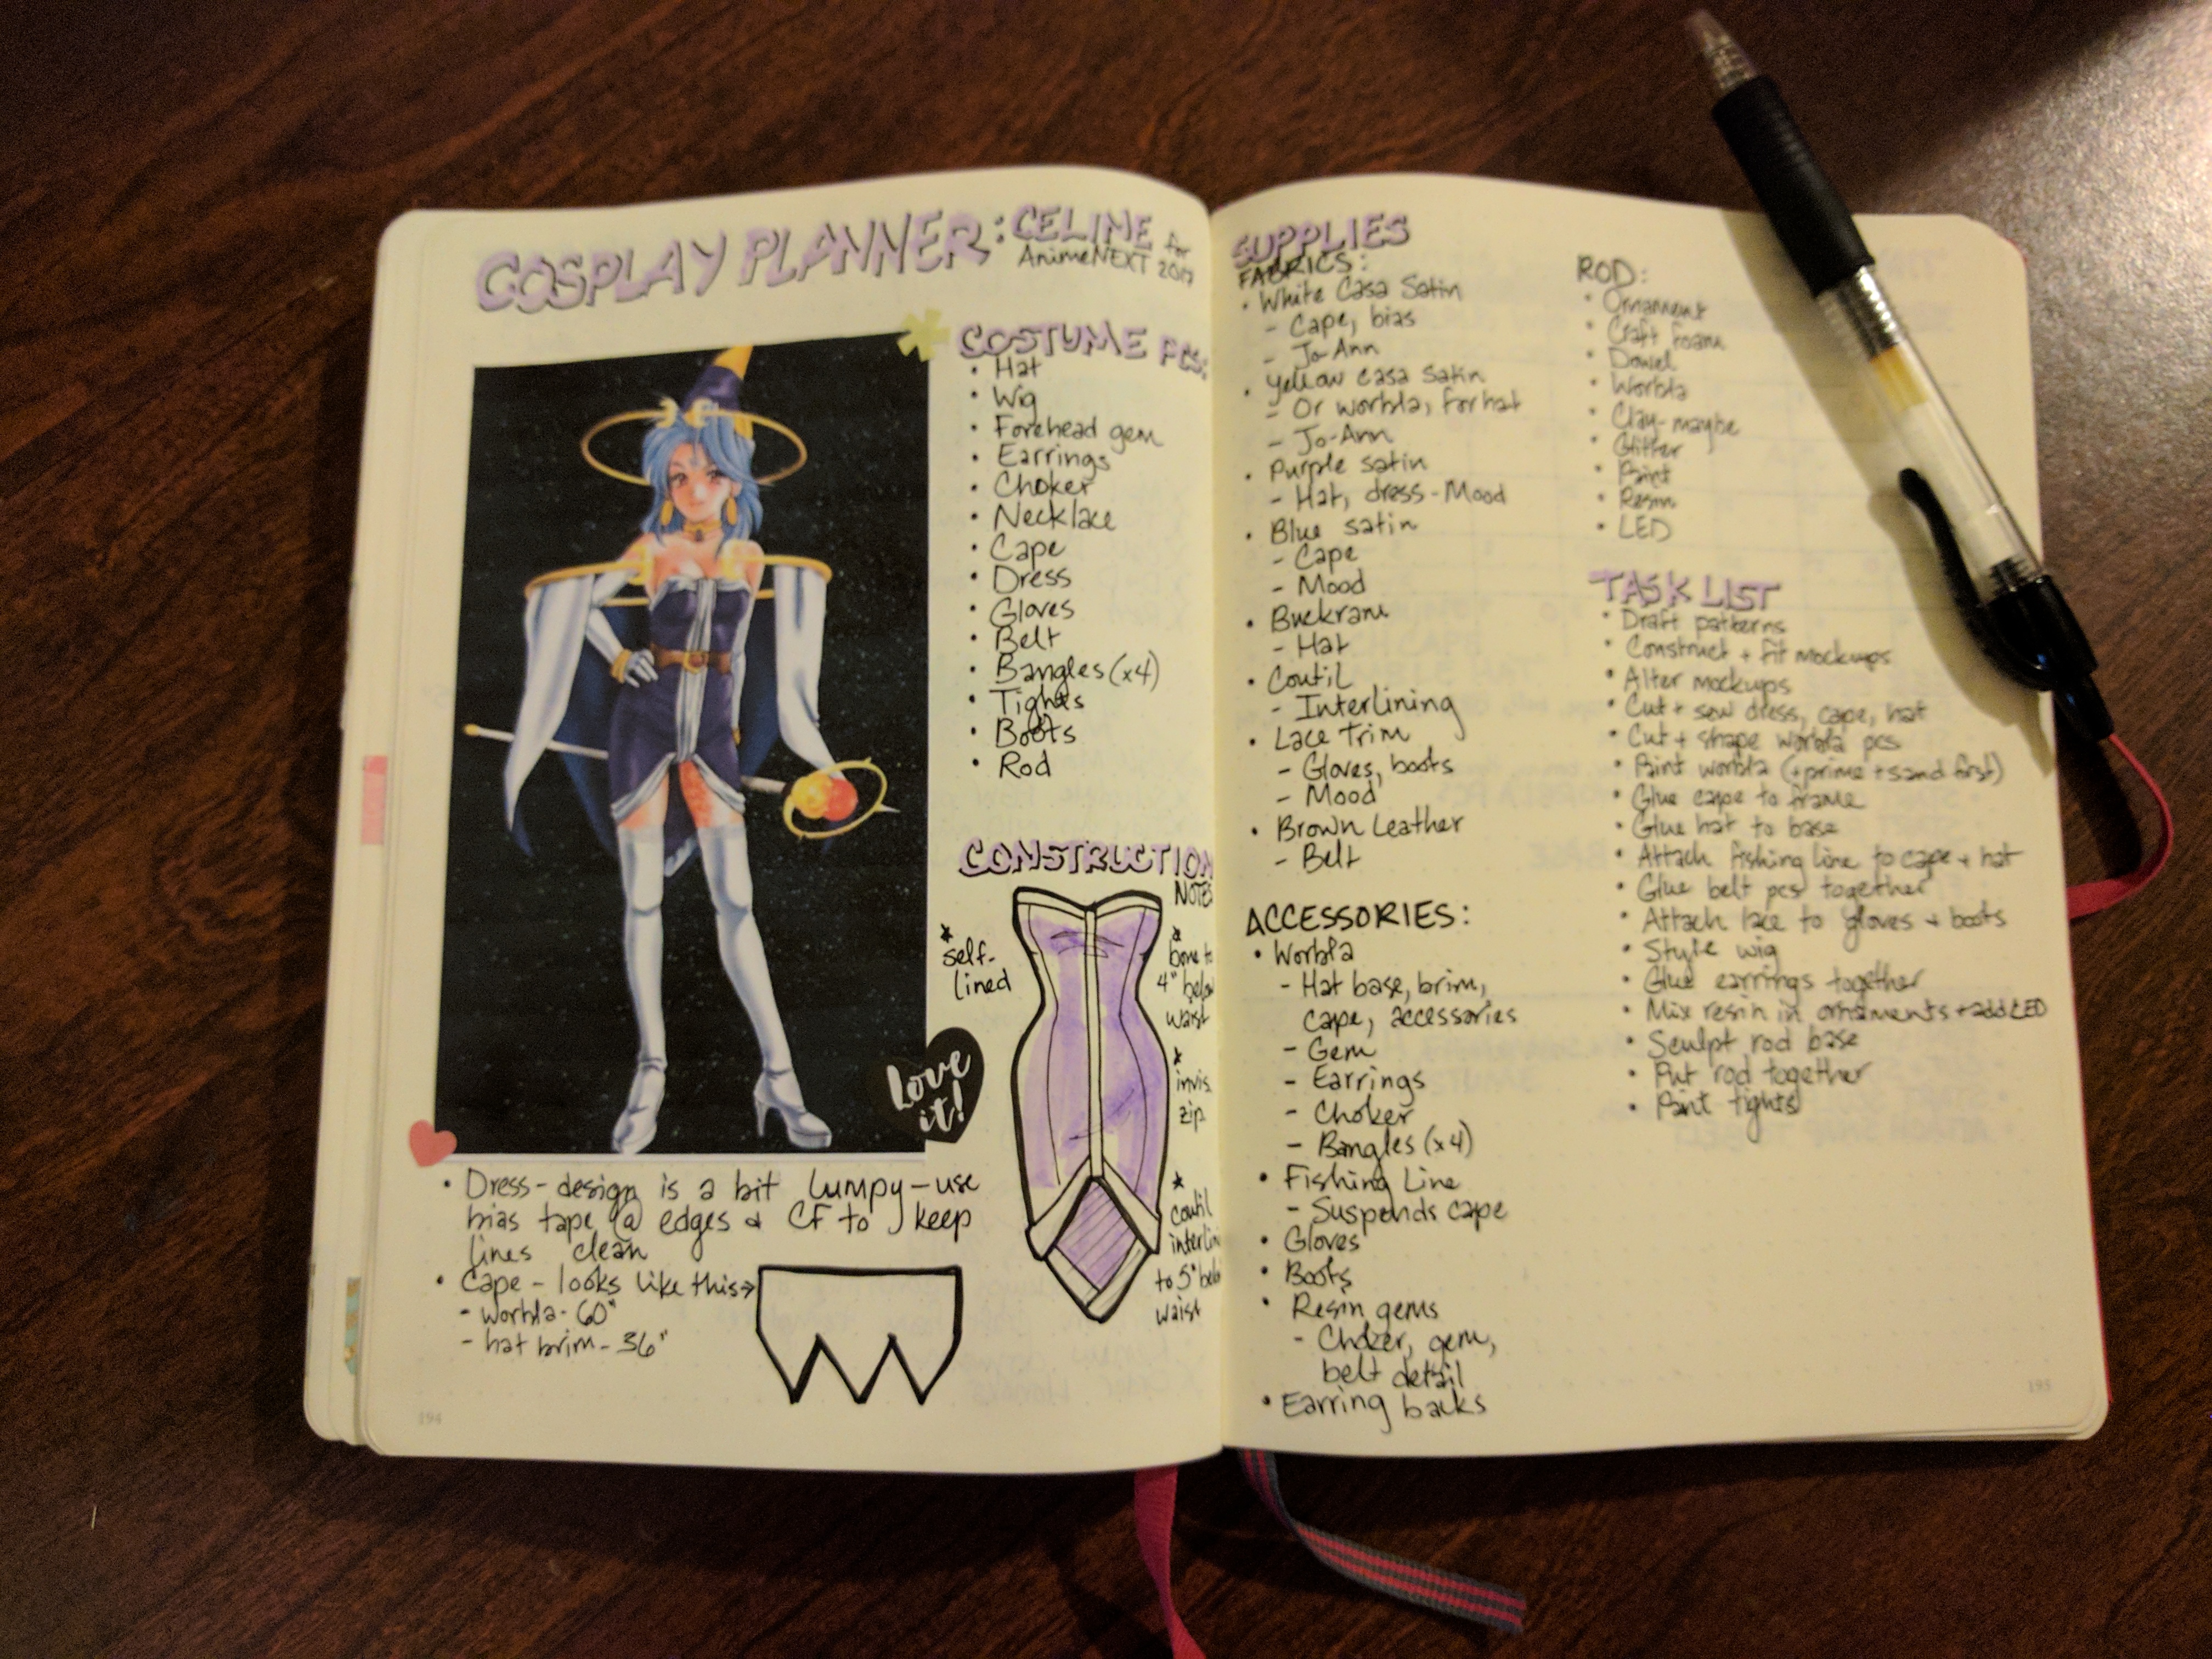 COSPLAY PLANNER: CELINE for
AnimeNEXT 2017
COSTUME PCS:
• Hat
• Wig
• Forehead gem
• Earrings
• Choker
• Necklace
• Cape
• Dress
• Gloves
• Belt
• Bangles (x4)
• Tights
• Boots
• Rod
CONSTRUCTION
NOTES
* self-
lined
* bone to
4" below
waist
* invis.
zip
* coutil
interlin
to 5" below
waist
Love
it!
• Dress - design is a bit lumpy - use
bias tape @ edges & CF to keep
lines clean
• Cape - looks like this →
- worbla - 60"
- hat brim - 36"
194
SUPPLIES
FABRICS:
• White Casa Satin
- Cape, bias
- Jo-Ann
• Yellow casa satin
- Or worbla, for hat
- Jo-Ann
• Purple satin
- Hat, dress - Mood
• Blue satin
- Cape
- Mood
• Buckram
- Hat
• Coutil
- Interlining
• Lace Trim
- Gloves, boots
- Mood
• Brown Leather
- Belt
ACCESSORIES:
• Worbla
- Hat base, brim,
cape, accessories
- Gem
- Earrings
- Choker
- Bangles (x4)
• Fishing Line
- Suspends cape
• Gloves
• Boots
• Resin gems
- Choker, gem,
belt detail
• Earring backs
ROD:
• Ornament
• Craft foam
• Dowel
• Worbla
• Clay - maybe
• Glitter
• Paint
• Resin
• LED
TASK LIST
• Draft patterns
• Construct + fit mockups
• Alter mockups
• Cut + sew dress, cape, hat
• Cut + shape worbla pcs
• Paint worbla (+ prime + sand first)
• Glue cape to frame
• Glue hat to base
• Attach fishing line to cape + hat
• Glue belt pcs together
• Attach lace to gloves + boots
• Style wig
• Glue earrings together
• Mix resin in ornaments + add LED
• Sculpt rod base
• Put rod together
• Paint tights
195